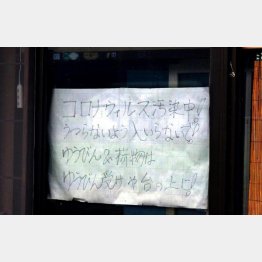 コロナウィルス汚染中!
うつらないよう入いらないで!?
ゆうびん&荷物は
ゆうびん受けや台の上に!